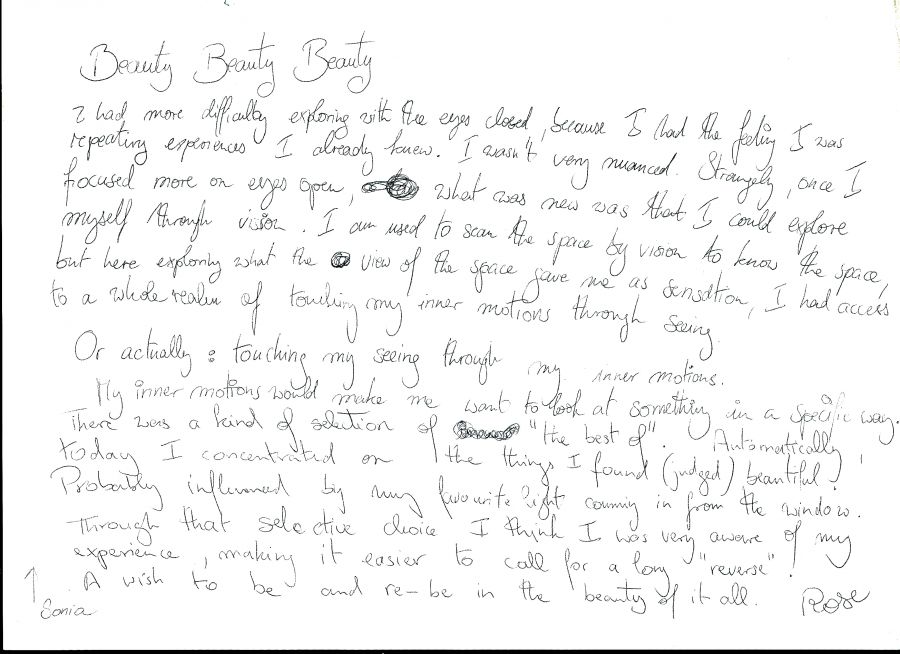 Beauty Beauty Beauty
I had more difficulty exploring with the eyes closed, because I had the feeling I was
repeating experiences I already knew. I wasn't very nuanced. Strangely, once I
focused more on eyes open, what was new was that I could explore
myself through vision. I am used to scan the space by vision to know the space,
but here exploring what the view of the space gave me as sensation, I had access
to a whole realm of touching my inner motions through seeing
Or actually: touching my seeing through my inner motions.
My inner motions would make me want to look at something in a specific way.
There was a kind of selection of "the best of". Automatically,
today I concentrated on the things I found (judged) beautiful!
Probably influenced by my favourite light coming in from the window.
Through that selective choice I think I was very aware of my
experience, making it easier to call for a long "reverse".
A wish to be and re-be in the beauty of it all. Rose
↑
Sonia